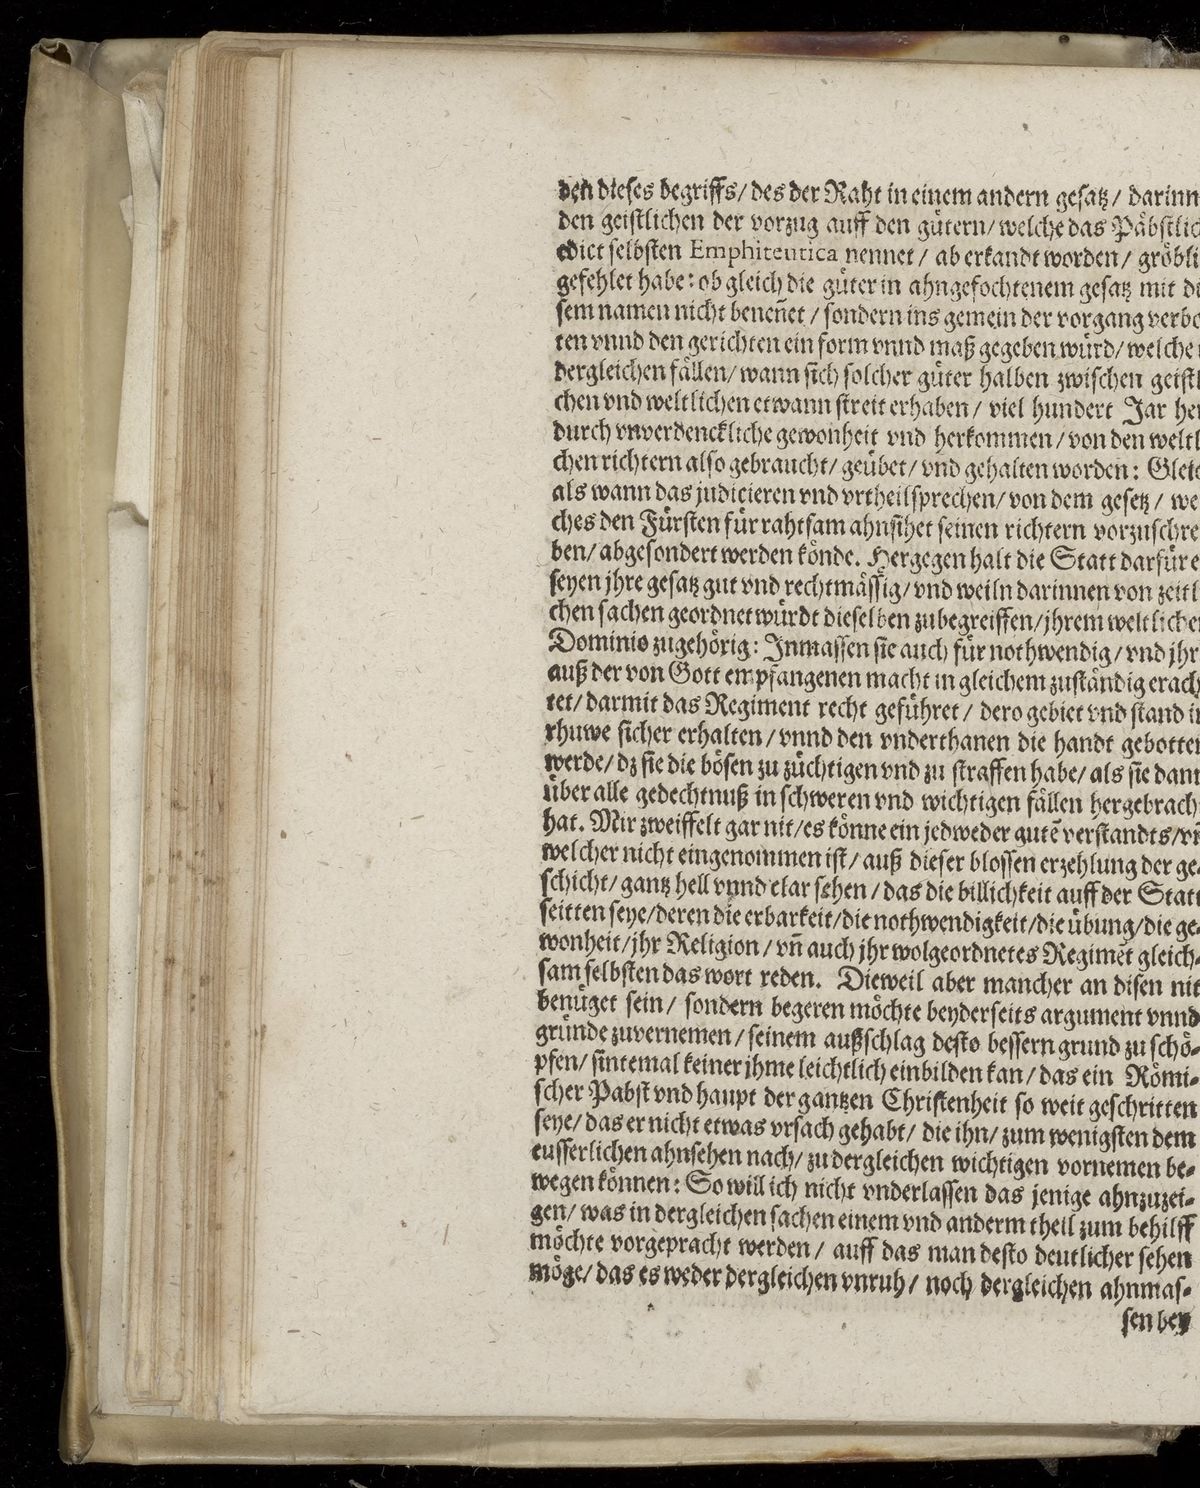 den dieses begriffs/ des der Raht in einem andern gesatz/ darinn
den geistlichen der vorzug auff den gütern/ welche das Päbstlic
edict selbsten Emphiteutica nennet/ ab erkandt worden/ gröbli
gefehlet habe: ob gleich die güter in ahngefochtenem gesatz mit di
sem namen nicht beneñet/ sondern ins gemein der vorgang verbo
ten vnnd den gerichten ein form vnnd maß gegeben würd/ welche
dergleichen fällen/ wann sich solcher güter halben zwischen geistl
chen vnd weltlichen etwann streit erhaben/ viel hundert Jar her
durch vnverdenckliche gewonheit vnd herkommen/ von den weltl
chen richtern also gebraucht/ geübet/ vnd gehalten worden: Gleic
als wann das judicieren vnd vrtheilsprechen/ von dem gesetz/ we
ches den Fürsten für rahtsam ahnsihet seinen richtern vorzuschre
ben/ abgesondert werden könde. Hergegen halt die Statt darfür e
seyen jhre gesatz gut vnd rechtmässig/ vnd weiln darinnen von zeitl
chen sachen geordnet würdt dieselben zubegreiffen/ jhrem weltliche
Dominio zugehörig: Inmassen sie auch für nothwendig/ vnd jhr
auß der von Gott empfangenen macht in gleichem zuständig erach
tet/ darmit das Regiment recht geführet/ dero gebiet vnd stand i
rhuwe sicher erhalten/ vnnd den vnderthanen die handt gebotten
werde/ dz sie die bösen zu züchtigen vnd zu straffen habe/ als sie dann
über alle gedechtnuß in schweren vnd wichtigen fällen hergebrach
hat. Mir zweiffelt gar nit/ es könne ein jedweder gutẽ verstandts/ vñ
welcher nicht eingenommen ist/ auß dieser blossen erzehlung der ge-
schicht/ gantz hell vnnd clar sehen/ das die billichkeit auff der Statt
seitten seye/ deren die erbarkeit/ die nothwendigkeit/ die übung/ die ge-
wonheit/ jhr Religion/ vñ auch jhr wolgeordnetes Regimẽt gleich-
sam selbsten das wort reden. Dieweil aber mancher an disen nit
benüget sein/ sondern begeren möchte beyderseits argument vnnd
gründe zuvernemen/ seinem außschlag desto bessern grund zu schö-
pfen/ sintemal keiner jhme leichtlich einbilden kan/ das ein Römi-
scher Pabst vnd haupt der gantzen Christenheit so weit geschritten
seye/ das er nicht etwas vrsach gehabt/ die ihn/ zum wenigsten dem
eusserlichen ahnsehen nach/ zu dergleichen wichtigen vornemen be-
wegen können: So will ich nicht vnderlassen das jenige ahnzuzei-
gen/ was in dergleichen sachen einem vnd anderm theil zum behilff
möchte vorgepracht werden/ auff das man desto deutlicher sehen
möge/ das es weder dergleichen vnruh/ noch dergleichen ahnmas-
sen bey